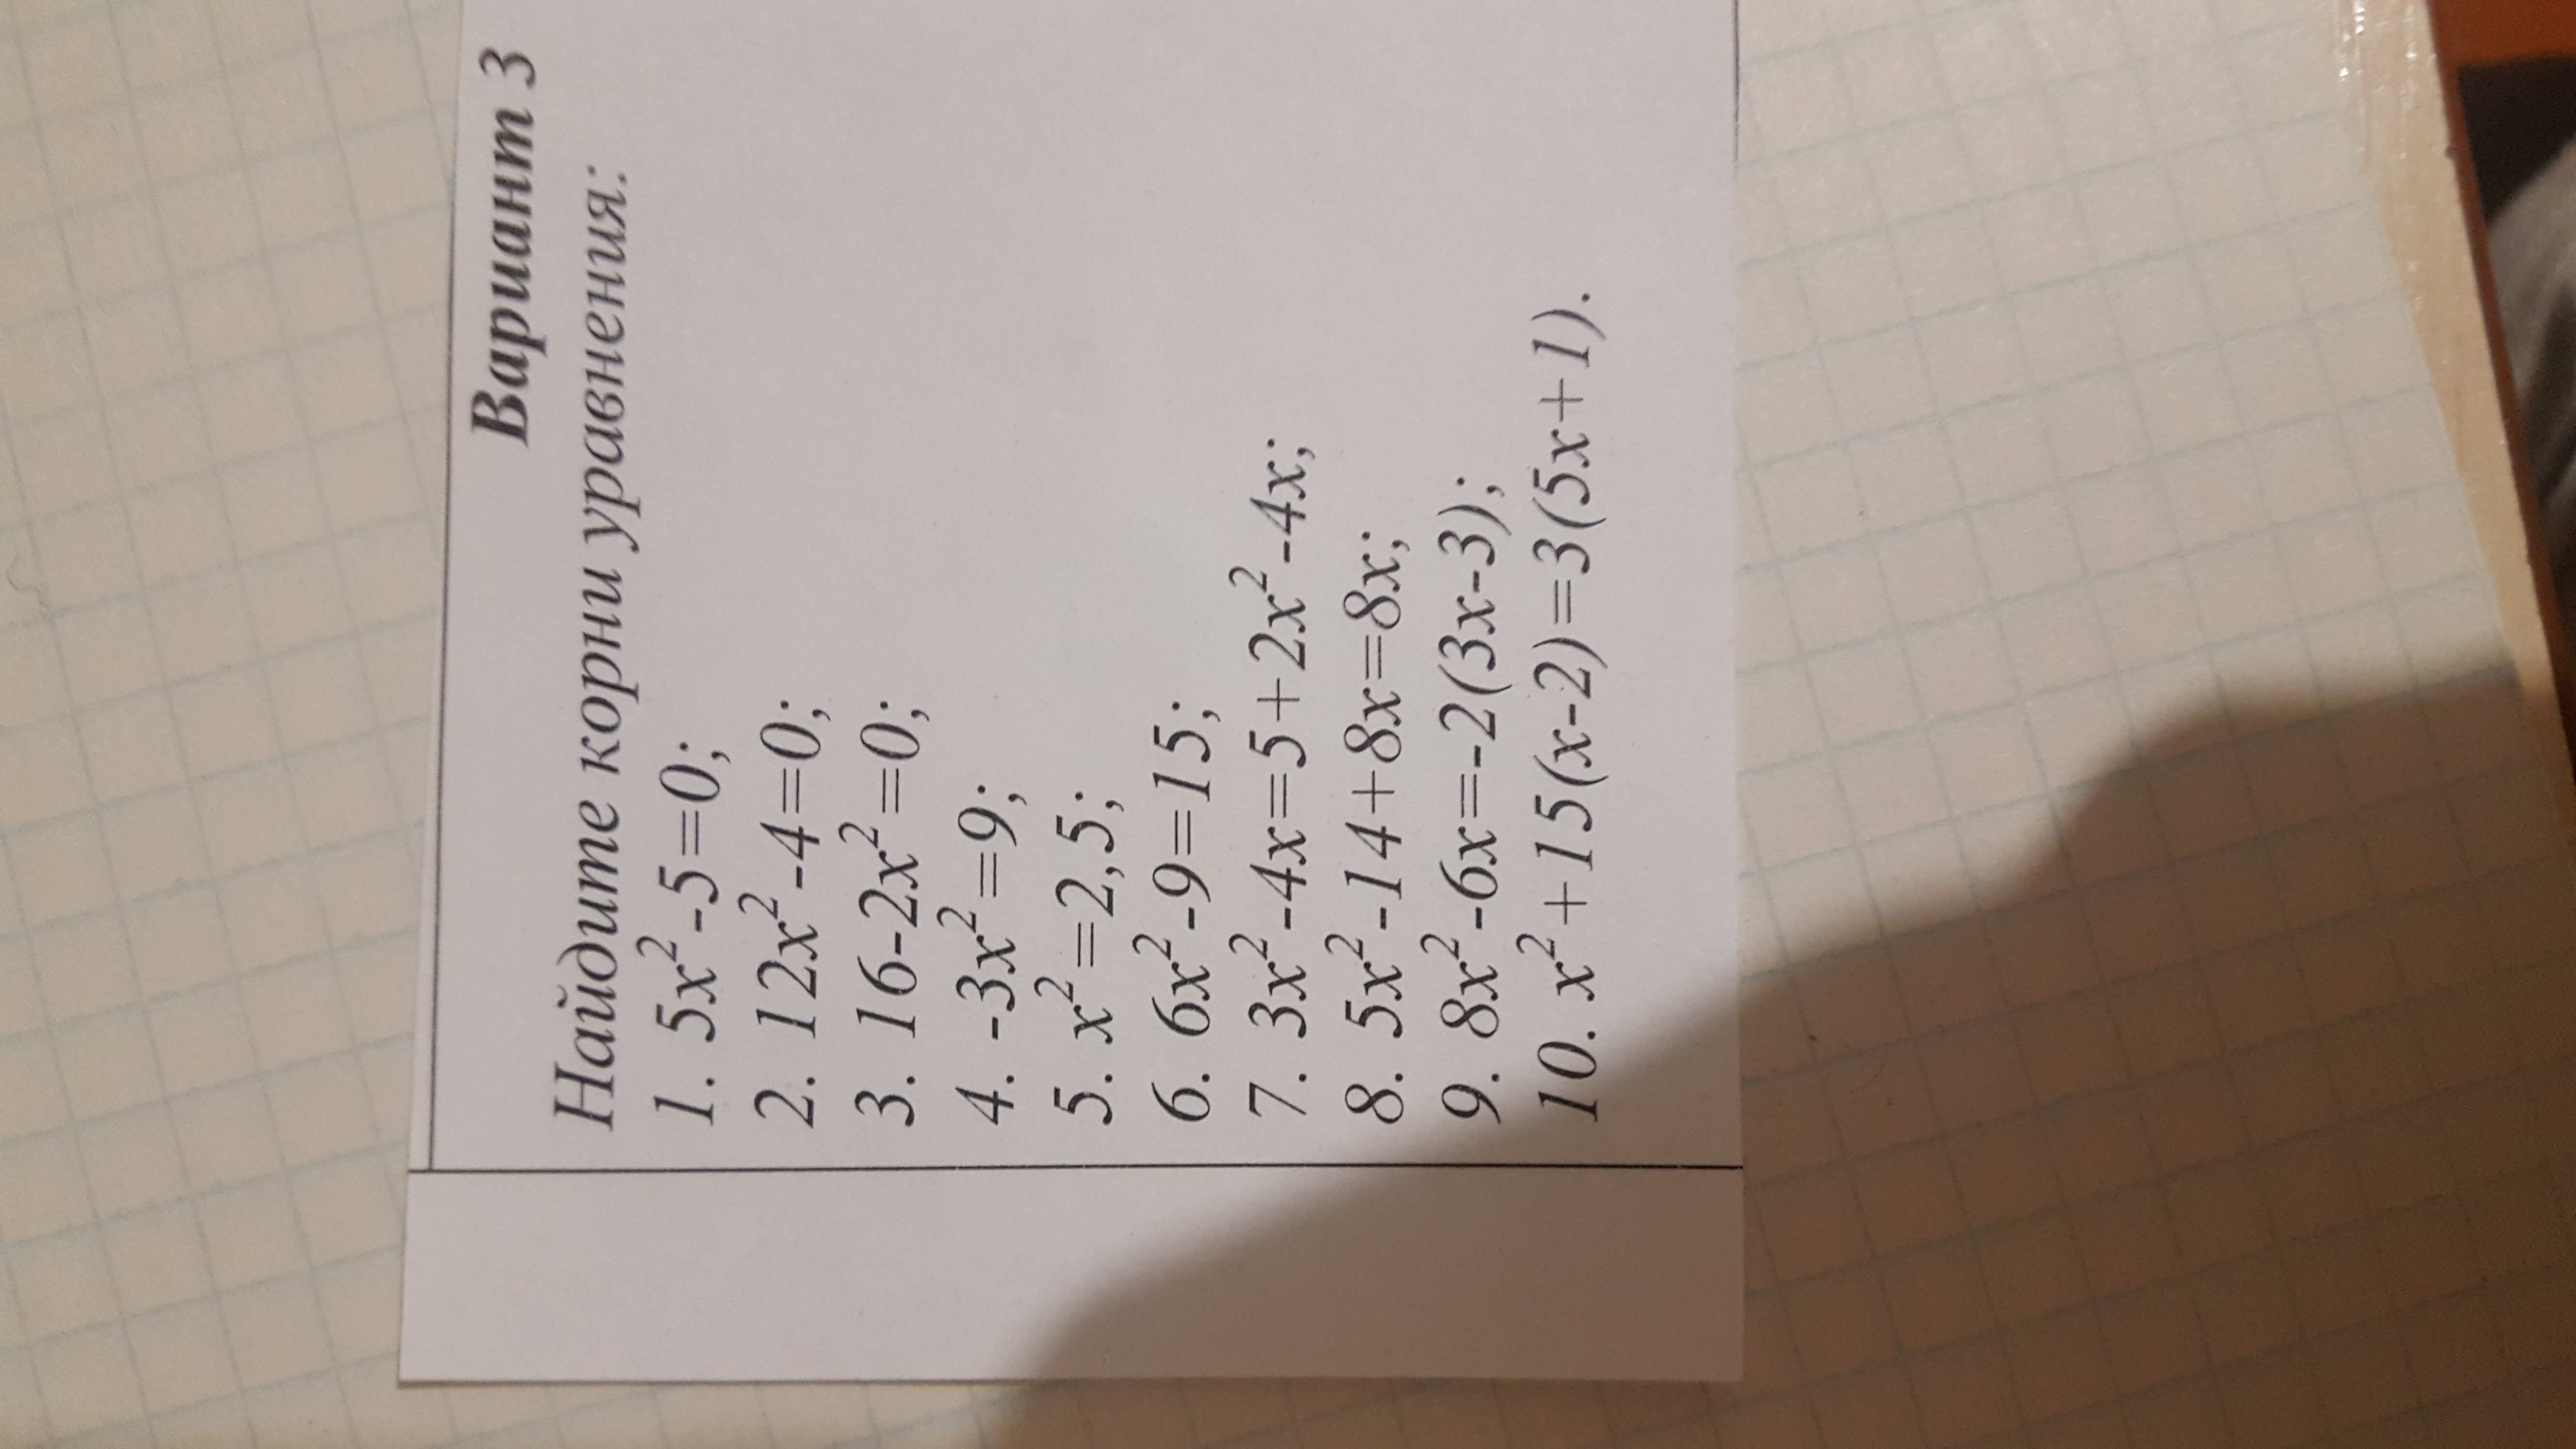 Вариант 3
Найдите корни уравнения:
1. 5x²-5=0;
2. 12x²-4=0;
3. 16-2x²=0;
4. -3x²=9;
5. x²=2,5;
6. 6x²-9=15;
7. 3x²-4x=5+2x²-4x;
8. 5x²-14+8x=8x;
9. 8x²-6x=-2(3x-3);
10. x²+15(x-2)=3(5x+1).